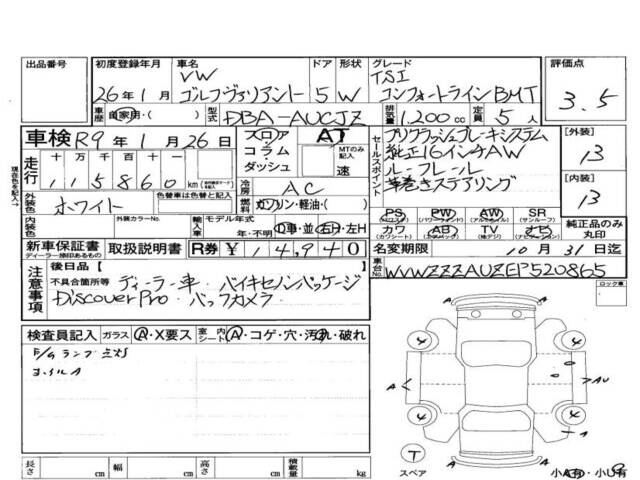 出品番号
初度登録年月
26年1月
車名
VW
ゴルフヴァリアント
ドア
5
形状
W
グレード
TSI
コンフォートラインBMT
評価点
3.5
車歴
自家用・( )
型式
DBA-AUCJZ
排気量
1,200cc
定員
5人
車検 R9年1月26日
走行
十万千百十一
115860km
現在色を記入→
外装色
ホワイト
外装カラーNo.
内装色
フロア
コラム
ダッシュ
AT
MTのみ記入
速
冷房
AC
燃料
ガソリン・軽油・( )
輸入車
モデル年式
年・不明
D車・並
右H・左H
セールスポイント
プリクラッシュブレーキシステム
純正16インチAW
ルーフレール
革巻きステアリング
[外装]
13
[内装]
13
PS
(パワステ)
PW
(パワーウィンド)
AW
(アルミホイール)
SR
(サンルーフ)
カワ
(カワシート)
AB
(エアバッグ)
TV
(地デジ)
ナビ
(ナビゲーション)
純正品のみ
丸印
新車保証書
ディーラー捺印あるもの
取扱説明書
R券 ¥14,940
名変期限
10月31日迄
車台No.
WVWZZZAUZEP520865
注意事項
後日品[ ]
不具合箇所等
ディーラー車・バイキセノンパッケージ
Discover Pro・バックカメラ
ロック車
検査員記入
ガラス
A・X要ス
室内シート
A・コゲ・穴・汚れ・破れ
F/Gランプ点灯
オイルA
4
4
4
4
A
AU
A
T
スペア
小A有・小U有
長さ
cm
幅
cm
高さ
cm
積載量
kg